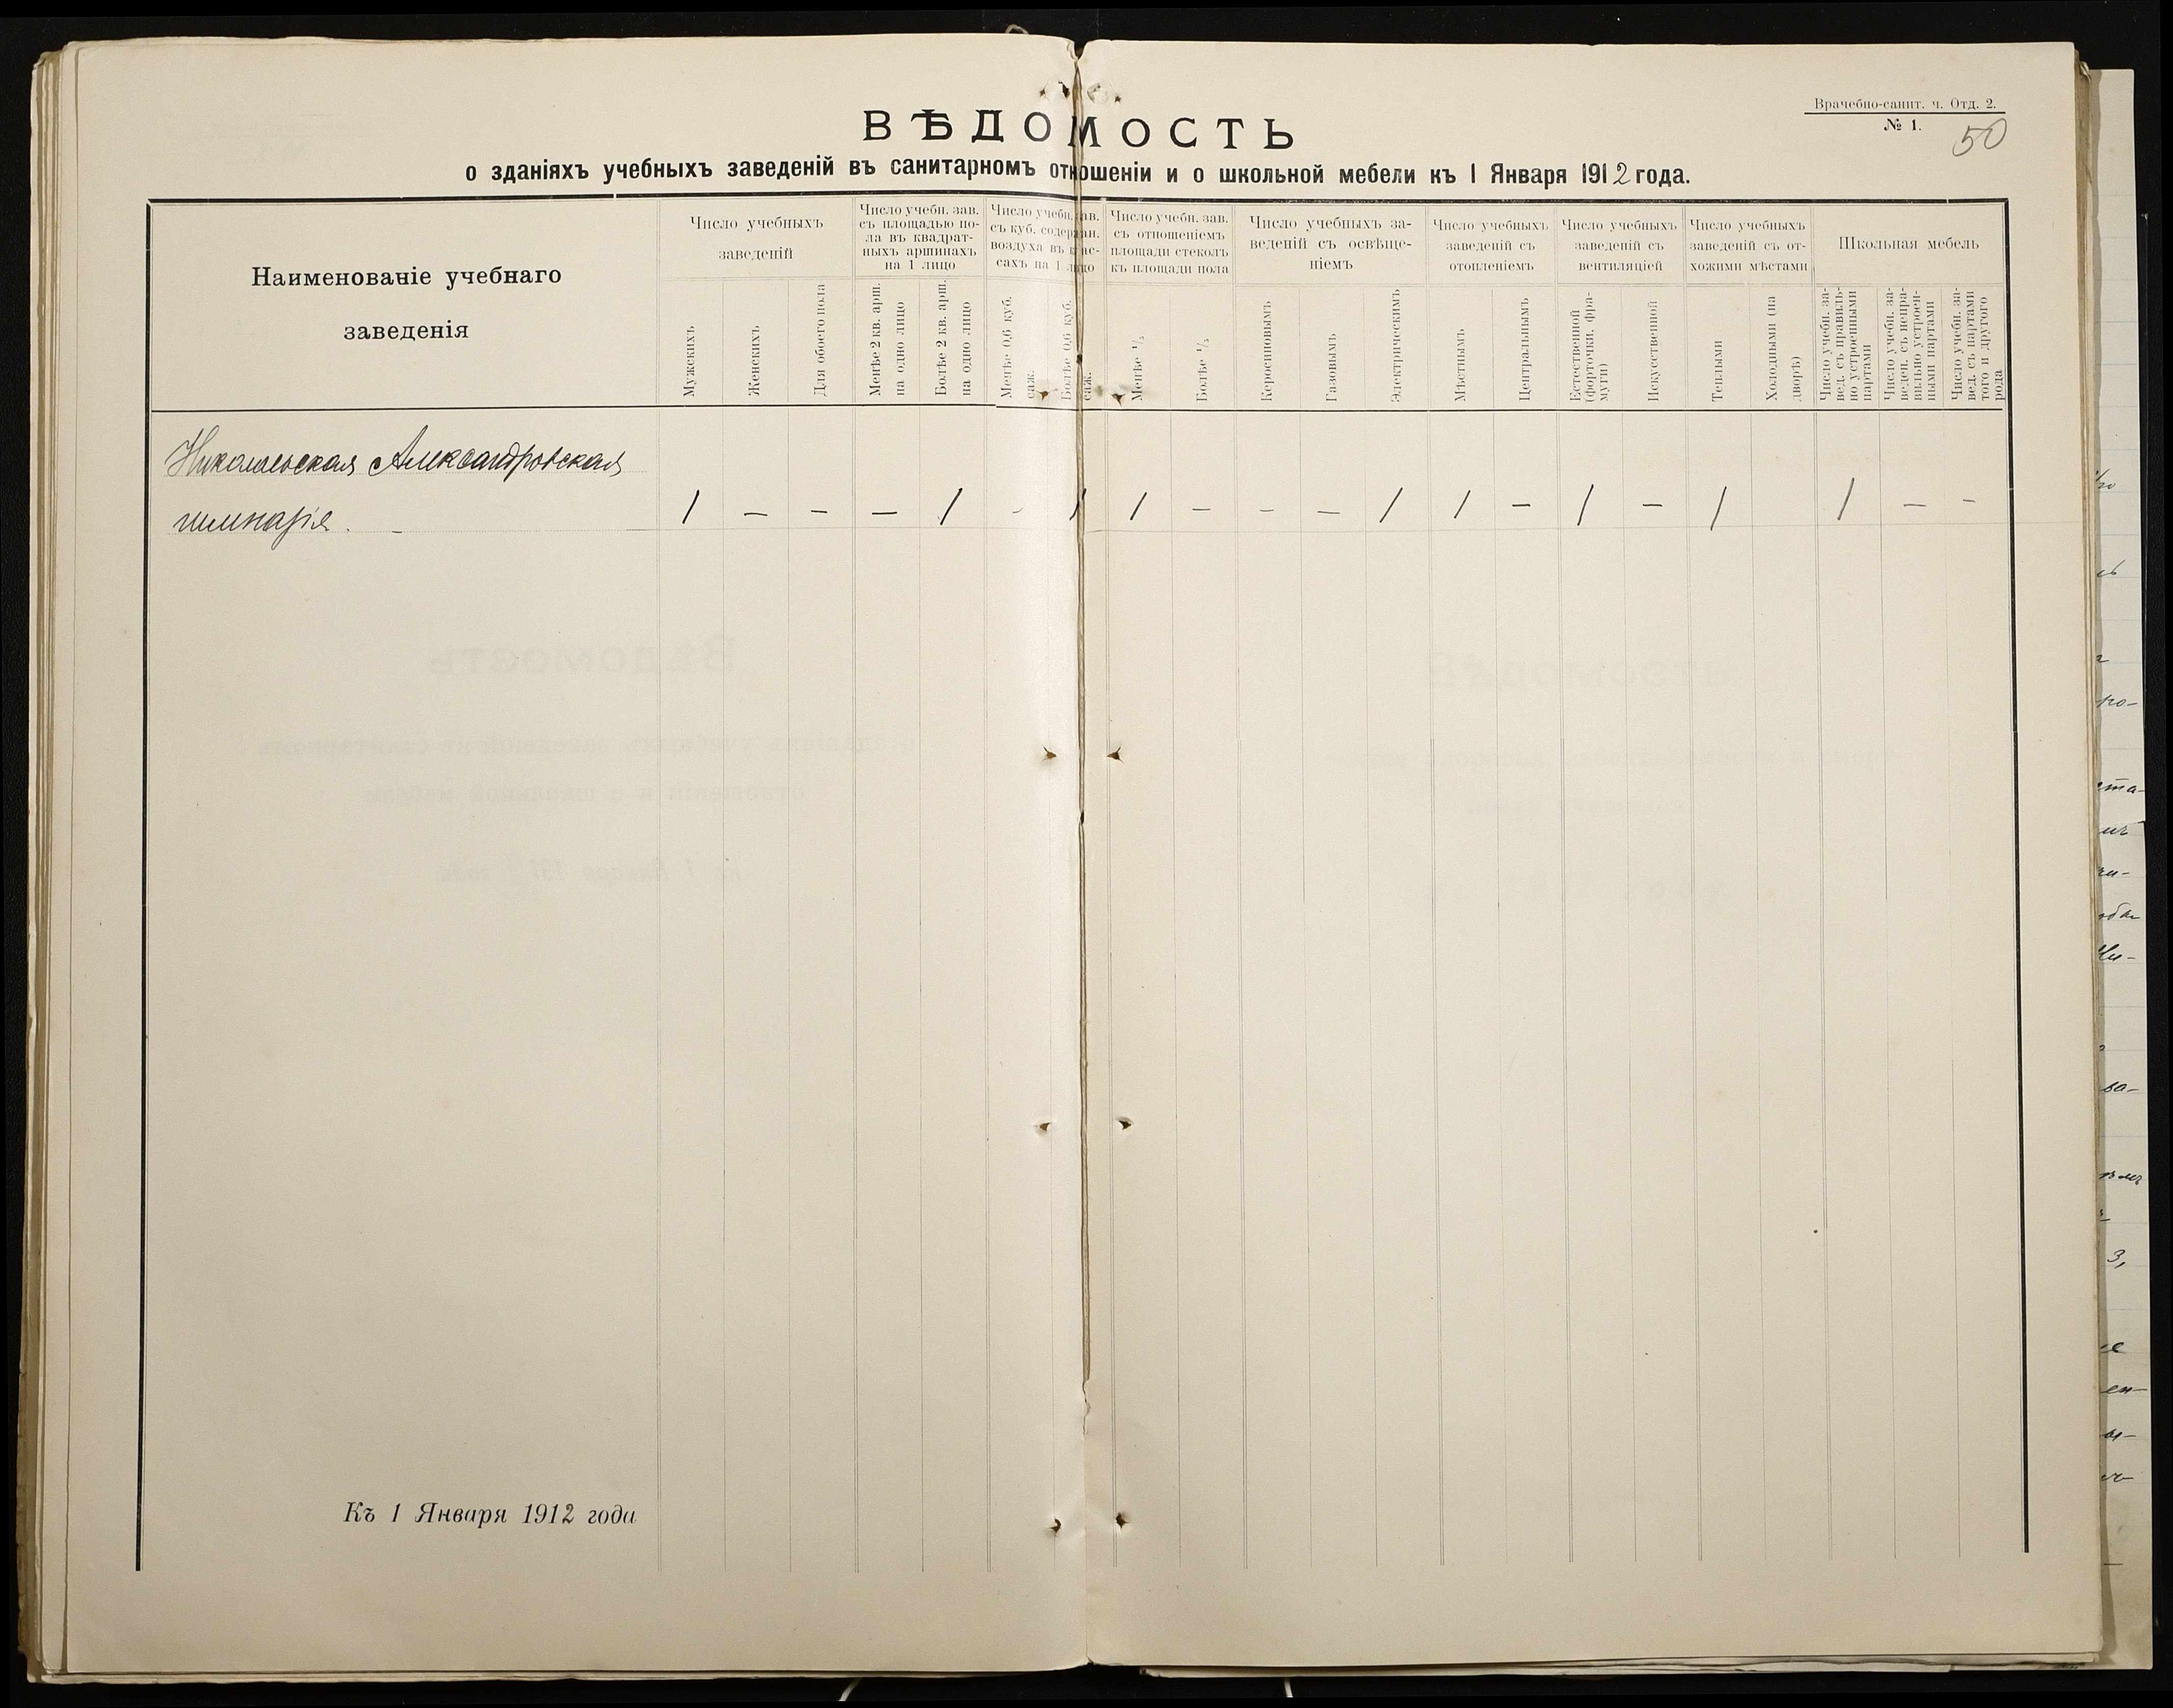 Врачебно-санит. ч. Отд. 2.
№ 1.
50
ВѢДОМОСТЬ
о зданіяхъ учебныхъ заведеній въ санитарномъ отношеніи и о школьной мебели къ 1 Января 1912 года.
Наименованіе учебнаго
заведенія
Число учебныхъ
заведеній
Мужскихъ
Женскихъ
Для обоего пола
Число учебн. зав.
съ площадью по-
ла въ квадрат-
ныхъ аршинахъ
на 1 лицо
Менѣе 2 кв. арш.
на одно лицо
Болѣе 2 кв. арш.
на одно лицо
Число учебн. зав.
съ куб. содержан.
воздуха въ клас-
сахъ на 1 лицо
Менѣе 0,6 куб.
саж.
Болѣе 0,6 куб.
саж.
Число учебн. зав.
съ отношеніемъ
площади стеколъ
къ площади пола
Менѣе 1/5
Болѣе 1/5
Число учебныхъ за-
веденій съ освѣще-
ніемъ
Керосиновымъ
Газовымъ
Электрическимъ
Число учебныхъ
заведеній съ
отопленіемъ
Мѣстнымъ
Центральнымъ
Число учебныхъ
заведеній съ
вентиляціей
Естественной
(форточки, фра-
муги)
Искусственной
Число учебныхъ
заведеній съ от-
хожими мѣстами
Теплыми
Холодными (на
дворѣ)
Школьная мебель
Число учебн. за-
вед. съ правиль-
но устроенными
партами
Число учебн. за-
веден. съ непра-
вильно устроен-
ными партами
Число учебн. за-
вед. съ партами
того и другого
рода
Николаевская Александровская
гимназія. –
1 – – – 1 - 1 1 – – – 1 1 – 1 – 1 1 – –
Къ 1 Января 1912 года